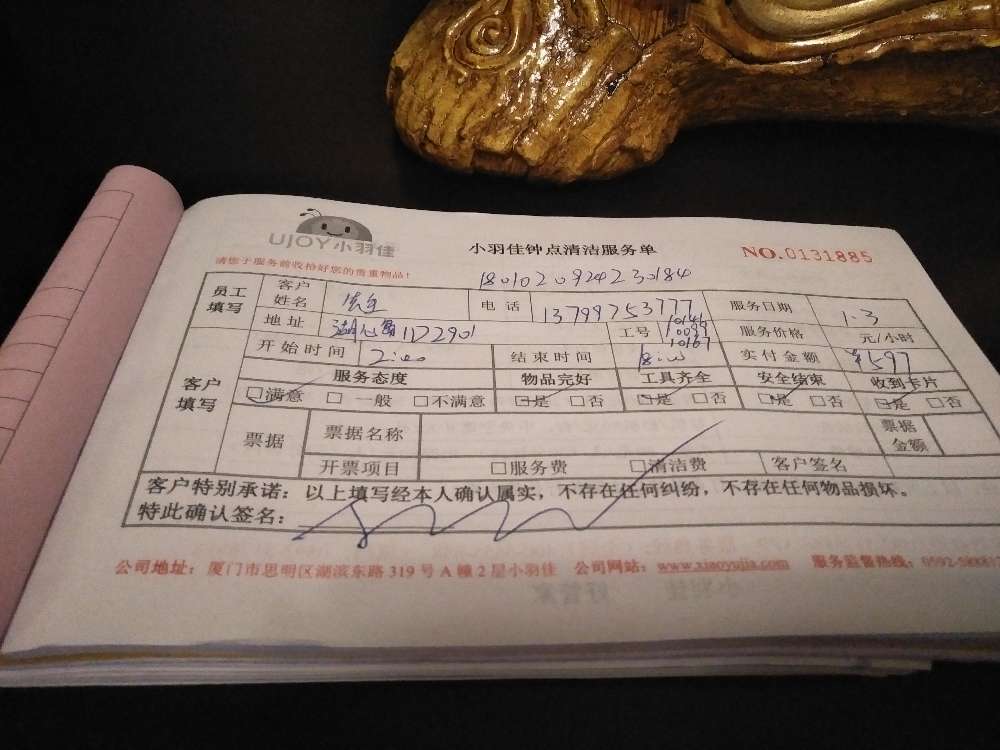 UJOY小羽佳
小羽佳钟点清洁服务单
NO.0131885
请您于服务前收拾好您的贵重物品!
1801020924230184
员工填写 客户姓名 电话 13799753777 服务日期 1.3
地址 1122901 工号 10099 10167 服务价格 元/小时
开始时间 结束时间 实付金额 ¥597
客户填写 服务态度 物品完好 工具齐全 安全结束 收到卡片
□满意 □一般 □不满意 □是 □否 □是 □否 □是 □否 □是 □否
票据 票据名称 票据金额
开票项目 □服务费 □清洁费 客户签名
客户特别承诺：以上填写经本人确认属实，不存在任何纠纷，不存在任何物品损坏。
特此确认签名：
公司地址：厦门市思明区湖滨东路319号A幢2层小羽佳 公司网站：www.xiaoyujia.com 服务监督热线：0592-